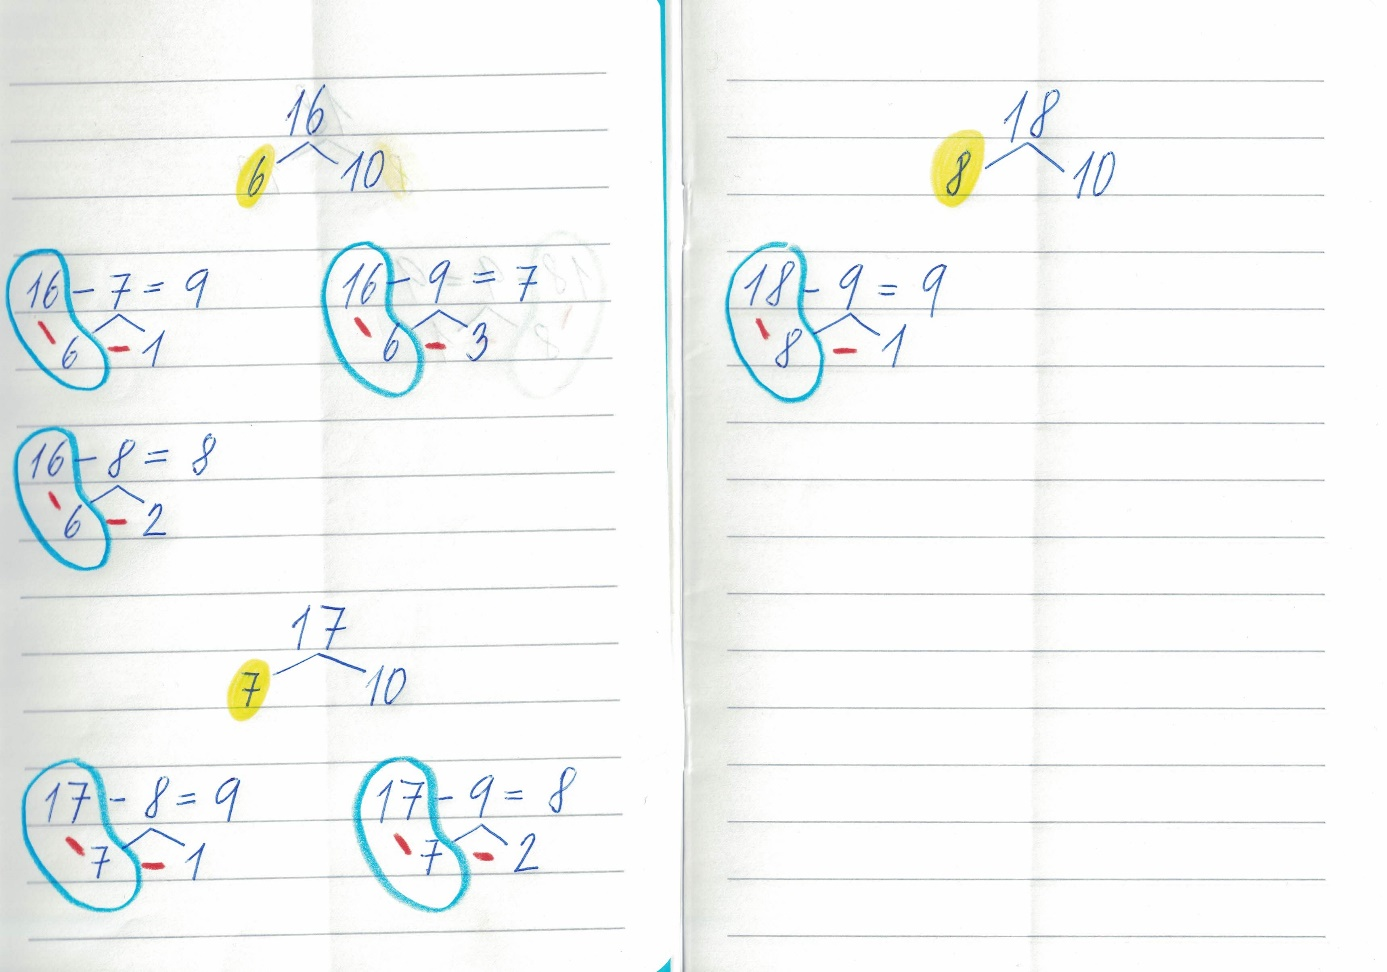 16
6 10
16 - 7 = 9 16 - 9 = 7
- 6 - 1 - 6 - 3
16 - 8 = 8
- 6 - 2
17
7 10
17 - 8 = 9 17 - 9 = 8
- 7 - 1 - 7 - 2
18
8 10
18 - 9 = 9
- 8 - 1